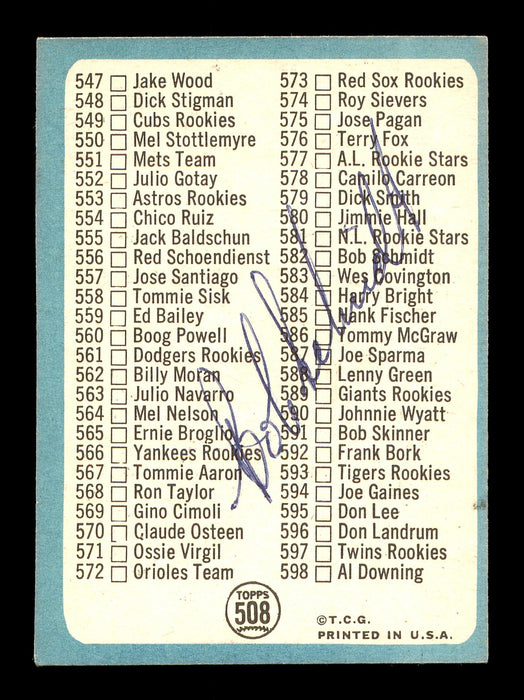 547 Jake Wood
548 Dick Stigman
549 Cubs Rookies
550 Mel Stottlemyre
551 Mets Team
552 Julio Gotay
553 Astros Rookies
554 Chico Ruiz
555 Jack Baldschun
556 Red Schoendienst
557 Jose Santiago
558 Tommie Sisk
559 Ed Bailey
560 Boog Powell
561 Dodgers Rookies
562 Billy Moran
563 Julio Navarro
564 Mel Nelson
565 Ernie Broglio
566 Yankees Rookies
567 Tommie Aaron
568 Ron Taylor
569 Gino Cimoli
570 Claude Osteen
571 Ossie Virgil
572 Orioles Team
573 Red Sox Rookies
574 Roy Sievers
575 Jose Pagan
576 Terry Fox
577 A.L. Rookie Stars
578 Camilo Carreon
579 Dick Smith
580 Jimmie Hall
581 N.L. Rookie Stars
582 Bob Schmidt
583 Wes Covington
584 Harry Bright
585 Hank Fischer
586 Tommy McGraw
587 Joe Sparma
588 Lenny Green
589 Giants Rookies
590 Johnnie Wyatt
591 Bob Skinner
592 Frank Bork
593 Tigers Rookies
594 Joe Gaines
595 Don Lee
596 Don Landrum
597 Twins Rookies
598 Al Downing
Bob Schmidt
TOPPS
508
©T.C.G.
PRINTED IN U.S.A.